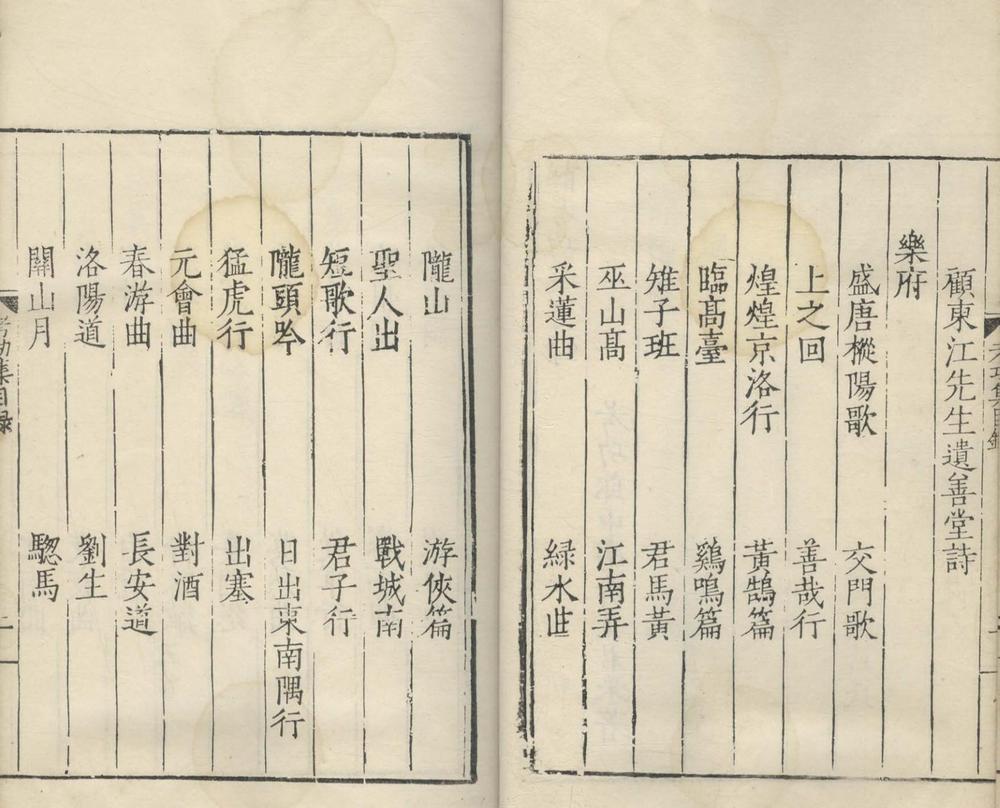 顧東江先生遺善堂詩
樂府
盛唐樅陽歌 交門歌
上之回 善哉行
煌煌京洛行 黃鵠篇
臨髙臺 鷄鳴篇
雉子班 君馬黃
巫山髙 江南弄
采蓮曲 緑水曲
隴山 游俠篇
聖人出 戰城南
短歌行 君子行
隴頭吟 日出東南隅行
猛虎行 出塞
元會曲 對酒
春游曲 長安道
洛陽道 劉生
關山月 驄馬
考功集目録